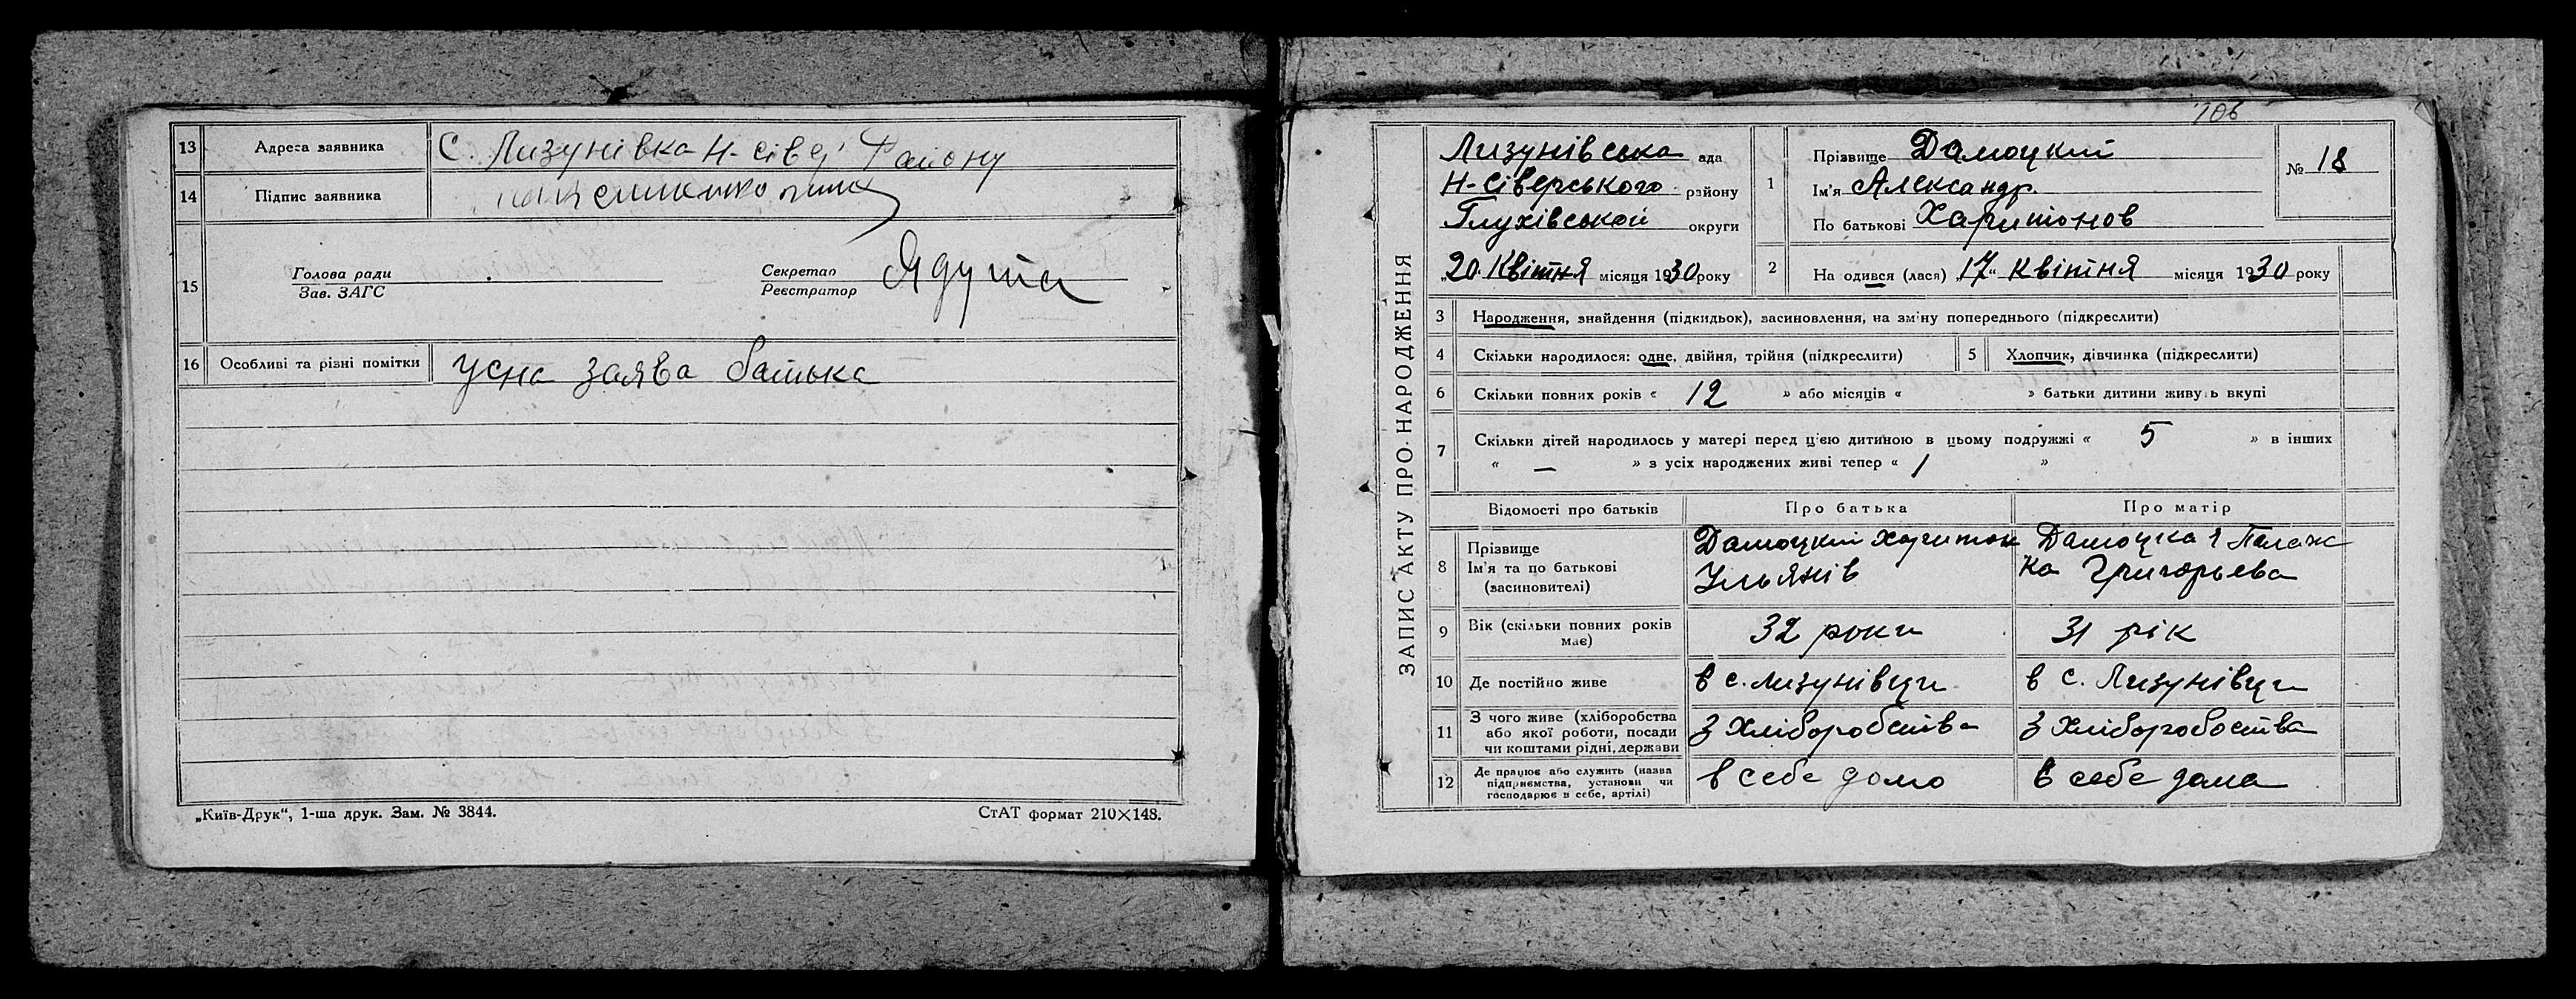 13 Адреса заявника С. Лизунівка Н-Сівер Району
14 Підпис заявника
15 Голова ради
Зав. ЗАГС
Секретар
Реєстратор Ядута
16 Особливі та різні помітки Усна заява батька
„Київ-Друк“, 1-ша друк. Зам. № 3844.
СтАТ формат 210×148.
106
ЗАПИС АКТУ ПРО НАРОДЖЕННЯ
Лизунівська ада
Н-Сіверського району
Глухівської округи
„20„ Квітня місяця 1930 року
1 Прізвище Дамоцкий
Ім'я Александр.
По батькові Харитонов
№ 18
2 На одився (лася) „17“ Квітня місяця 1930 року
3 Народження, знайдення (підкидьок), засиновлення, на зміну попереднього (підкреслити)
4 Скільки народилося: одне, двійня, трійня (підкреслити)
5 Хлопчик, дівчинка (підкреслити)
6 Скільки повних років « 12 » або місяців « » батьки дитини живуть вкупі
7 Скільки дітей народилось у матері перед цією дитиною в цьому подружжі « 5 » в інших
« — » з усіх народжених живі тепер « 1 »
Відомості про батьків Про батька Про матір
8 Прізвище
Ім'я та по батькові
(засиновителі)
Дамоцкий Харитон
Ульянів
Дамоцка я Палаж
ка Григорьева
9 Вік (скільки повних років
має)
32 роки
31 рік
10 Де постійно живе в с. Лизунівци в с. Лизунівци
11 З чого живе (хліборобства
або якої роботи, посади
чи коштами рідні, держави
З Хліборобства
З Хліборобоства
12 Де працює або служить (назва
підприємства, установи чи
господарює в себе, артілі)
в себе домо
в себе дома